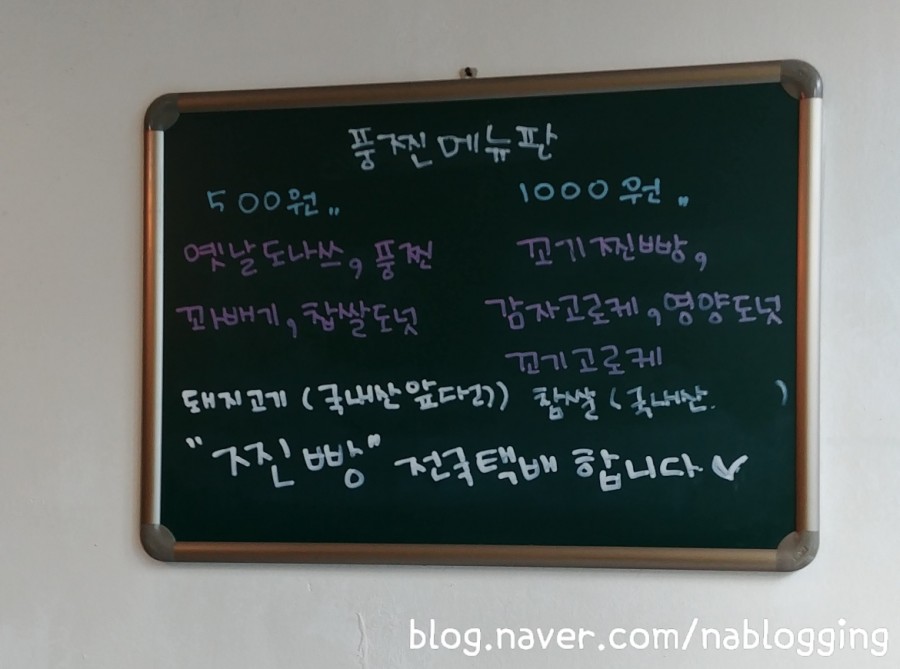 풍찐메뉴판
500원〃 1000원〃
옛날도나쓰, 풍찐 꼬기찐빵,
꽈배기, 찹쌀도넛 감자고로케, 영양도넛
꼬기고로케
돼지고기 (국내산앞다리) 찹쌀 (국내산. )
"찐빵" 전국택배 합니다
blog.naver.com/nablogging